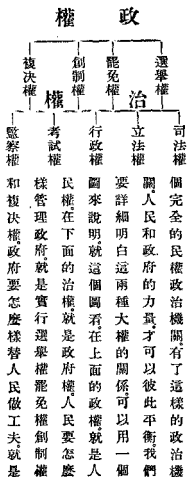 政權
選舉權
罷免權
創制權
複決權
治權
司法權
立法權
行政權
考試權
監察權
個完全的民權政治機關。有了這樣的政治機
關。人民和政府的力量。才可以彼此平衡。我們
要詳細明白這兩種大權的關係。可以用一個
圖來說明。就這個圖看。在上面的政權。就是人
民權。在下面的治權。就是政府權。人民要怎麼
樣管理政府。就是實行選舉權罷免權創制權
和複決權。政府要怎麼樣替人民做工夫。就是